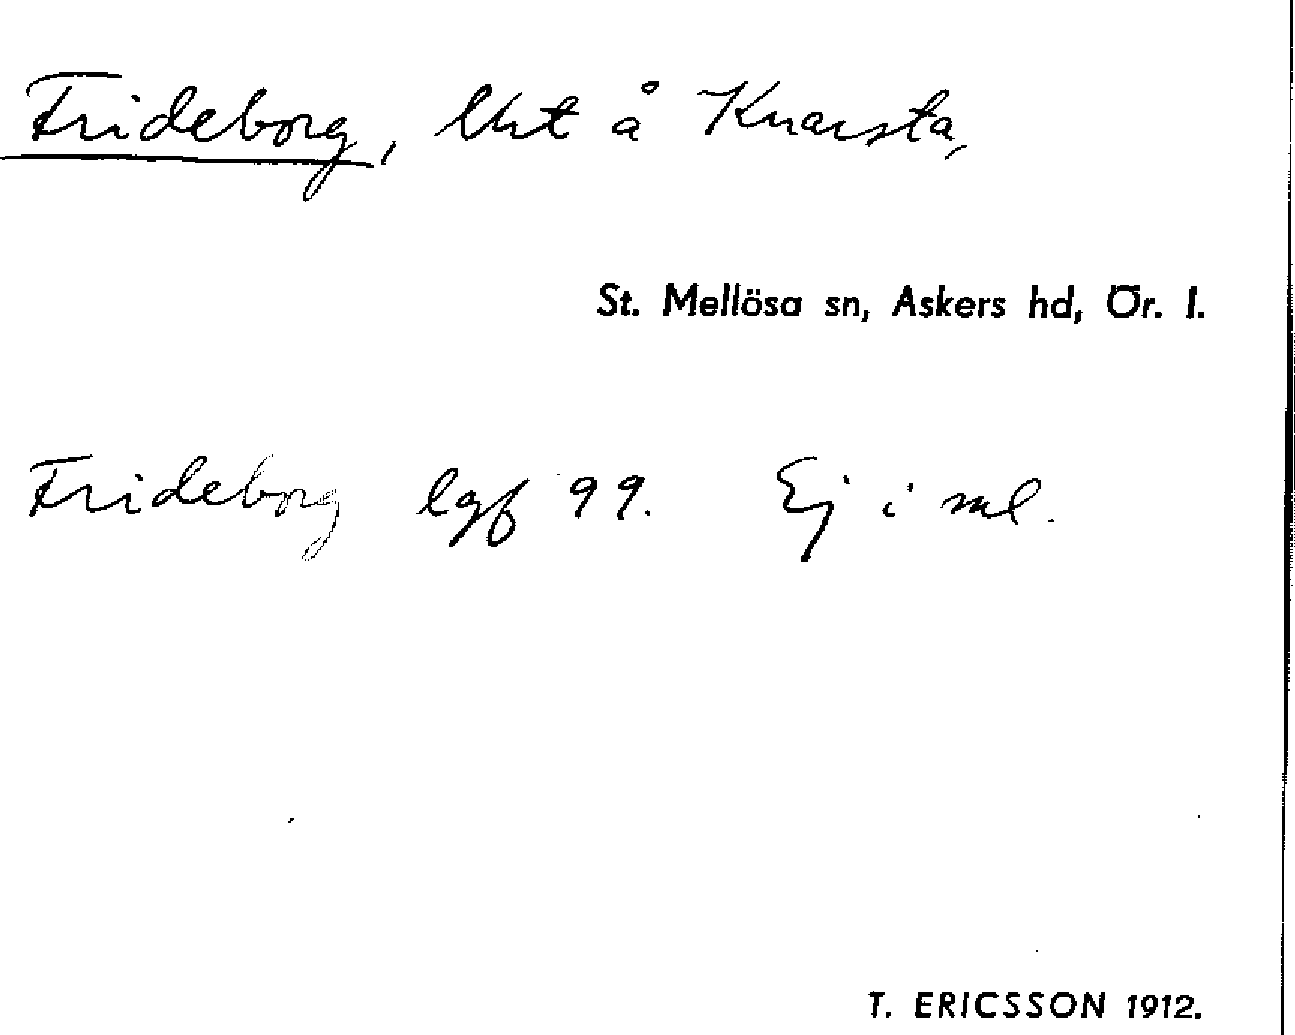 Frideborg, lht å Knarsta,
St. Mellösa sn, Askers hd, Ör. l.
Frideborg lgf 99. Ej i ml.
T. ERICSSON 1912.